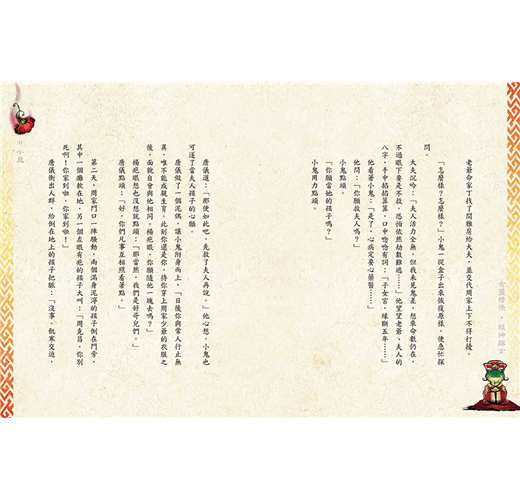 老爺命家丁找了間雅房給大夫，並交代周家上下不得打擾。
「怎麼樣？怎麼樣？」小鬼一從盒子出來恢復原樣，便急忙探
問。
大夫沉吟：「夫人活力全無，但我未見鬼差，想來命數仍在，
不過眼下要是不救，恐怕依然劫數難逃……」他望望老爺、夫人的
八字，手中掐掐算算，口中唸唸有詞：「子女宮，緣斷五年……」
他看著小鬼：「是了，心病定要心藥醫……」
他問：「你願救夫人嗎？」
小鬼點頭。
「你願當她的孩子嗎？」
小鬼用力點頭。
唐儀道：「那便如此吧，先救了夫人再說。」他心想，小鬼也
可遂了當夫人孩子的心願。
唐儀做了一個泥偶，讓小鬼附身而上，「日後你與常人行止無
異，唯不能成親生育，此刻你還是你，待你穿上周家少爺的衣服之
後，面貌自會與他相同。楊疤眼，你願隨他一塊去嗎？」
楊疤眼想也沒想就點頭：「那當然，我們是好哥兒們。」
唐儀點頭：「好，你們凡事互相照看著點。」
第二天，周家門口一陣騷動，兩個滿身泥濘的孩子倒在門旁，
其中一個癱軟在地，另一個左眼有疤的孩子大叫：「周克昌，你別
死啊！你家到啦，你家到啦！」
唐儀衝出人群，給倒在地上的孩子把脈：「沒事，飢寒交迫，
31 小鬼